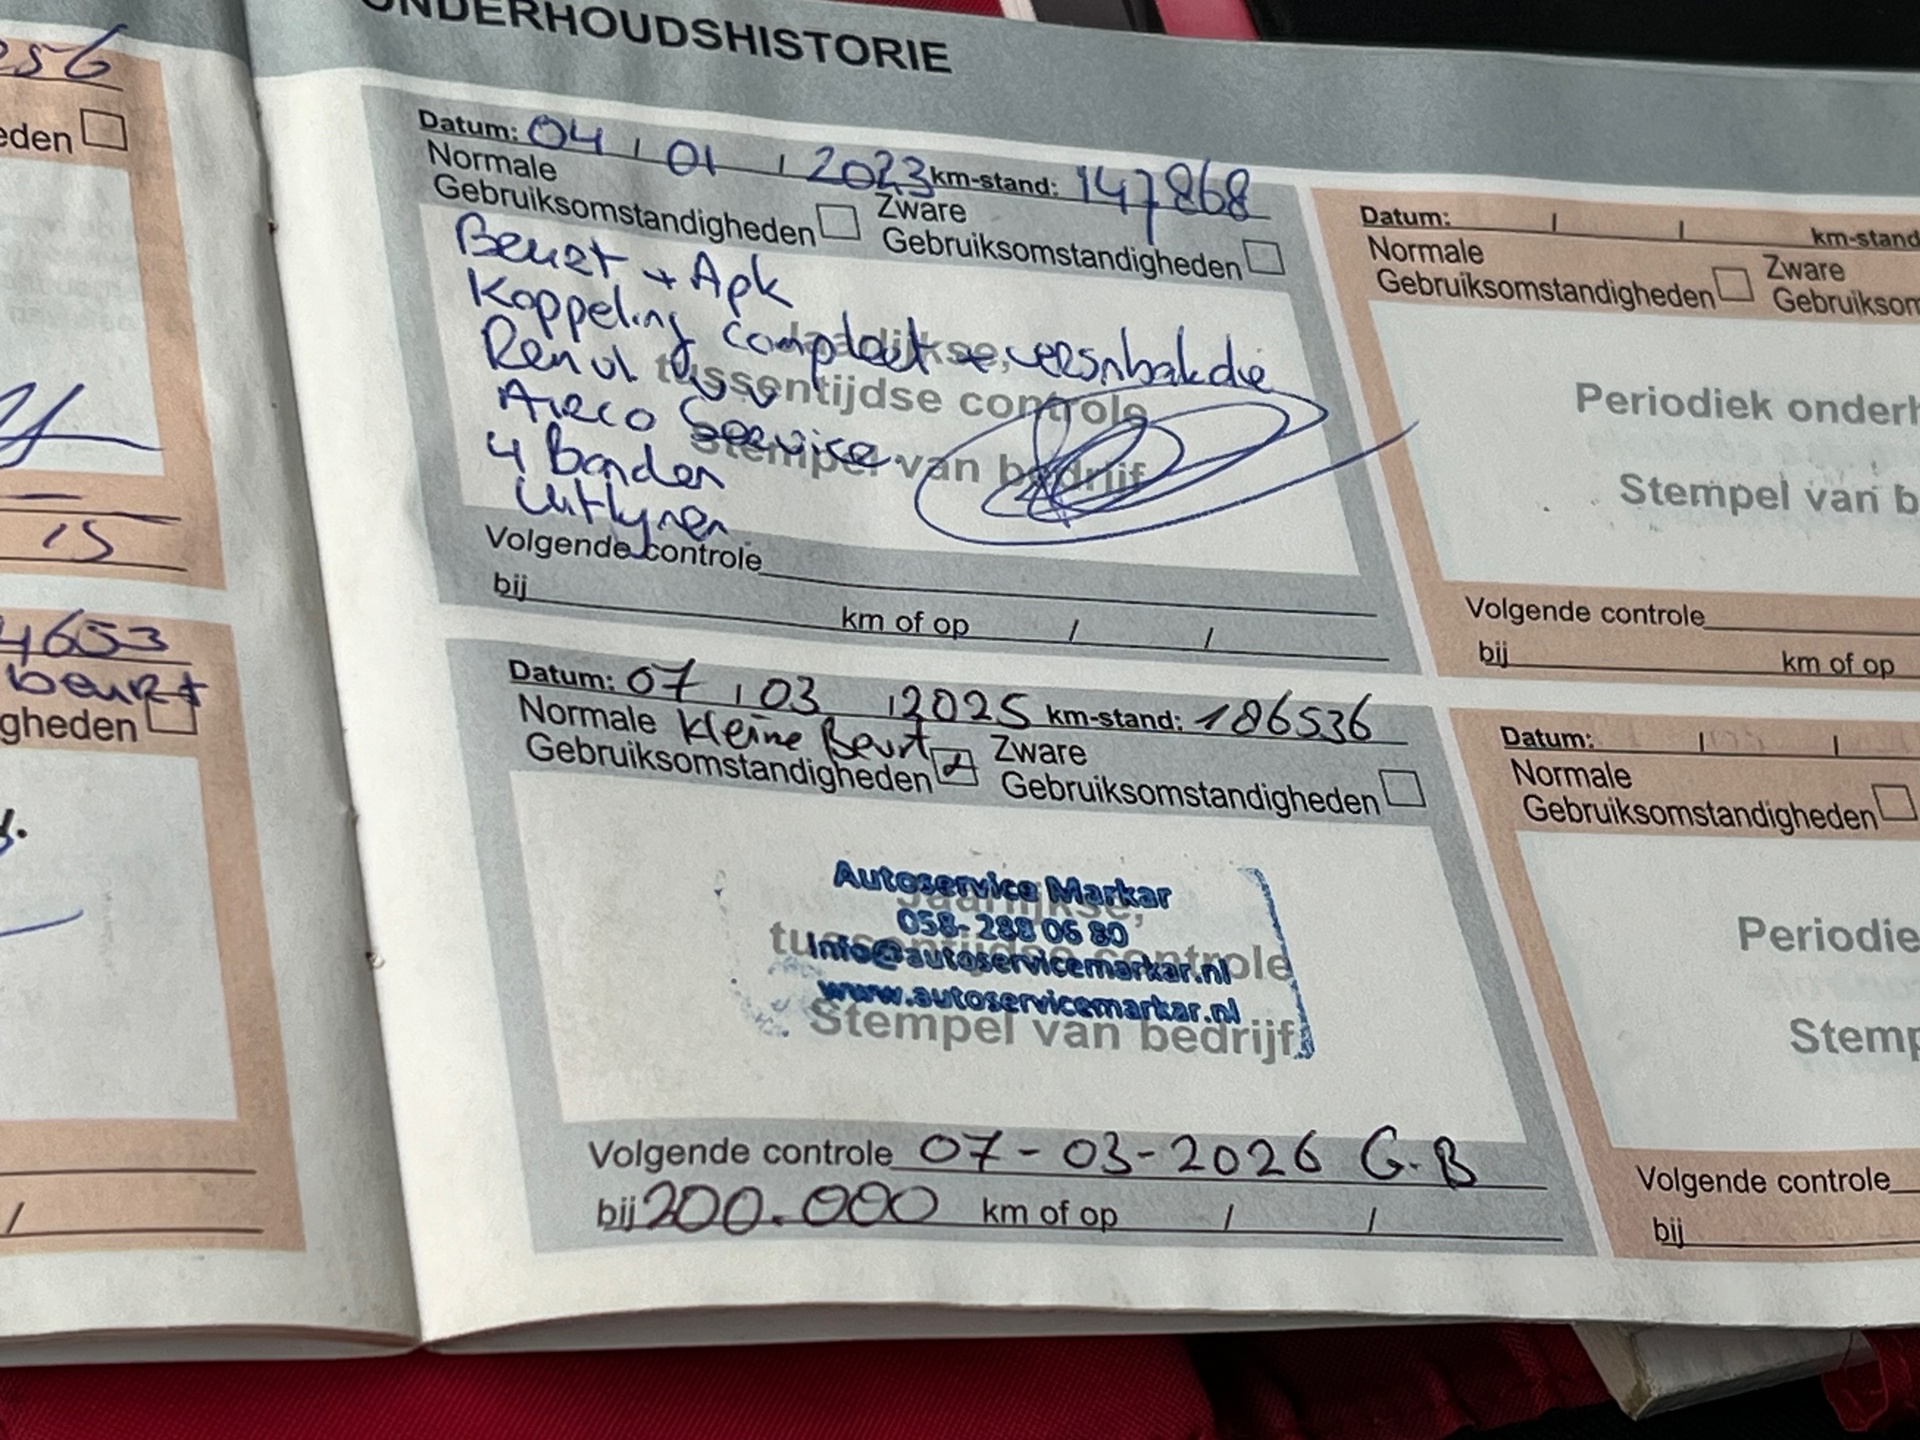 ONDERHOUDSHISTORIE
256
eden
15
4653
beurt
gheden
Datum: 04 / 01 / 2023 km-stand: 147868
Normale
Gebruiksomstandigheden
Zware
Gebruiksomstandigheden
Beurt + Apk
Koppeling compleet + versnbakdie
jaarlijkse,
tussentijdse controle
Stempel van bedrijf
Airco Service
4 Banden
Uitlynen
Volgende controle
bij
km of op / /
Datum: 07 / 03 / 2025 km-stand: 186536
Normale Kleine Beurt
Gebruiksomstandigheden
Zware
Gebruiksomstandigheden
Autoservice Markar
058-288 06 80
Info@autoservicemarkar.nl
www.autoservicemarkar.nl
Jaarlijkse,
tussentijdse controle
Stempel van bedrijf
Volgende controle 07-03-2026 G.B
bij 200.000 km of op / /
Datum: / / km-stand
Normale
Gebruiksomstandigheden
Zware
Gebruiksom
Periodiek onderh
Stempel van b
Volgende controle
bij
km of op
Datum: / /
Normale
Gebruiksomstandigheden
Periodie
Stemp
Volgende controle
bij